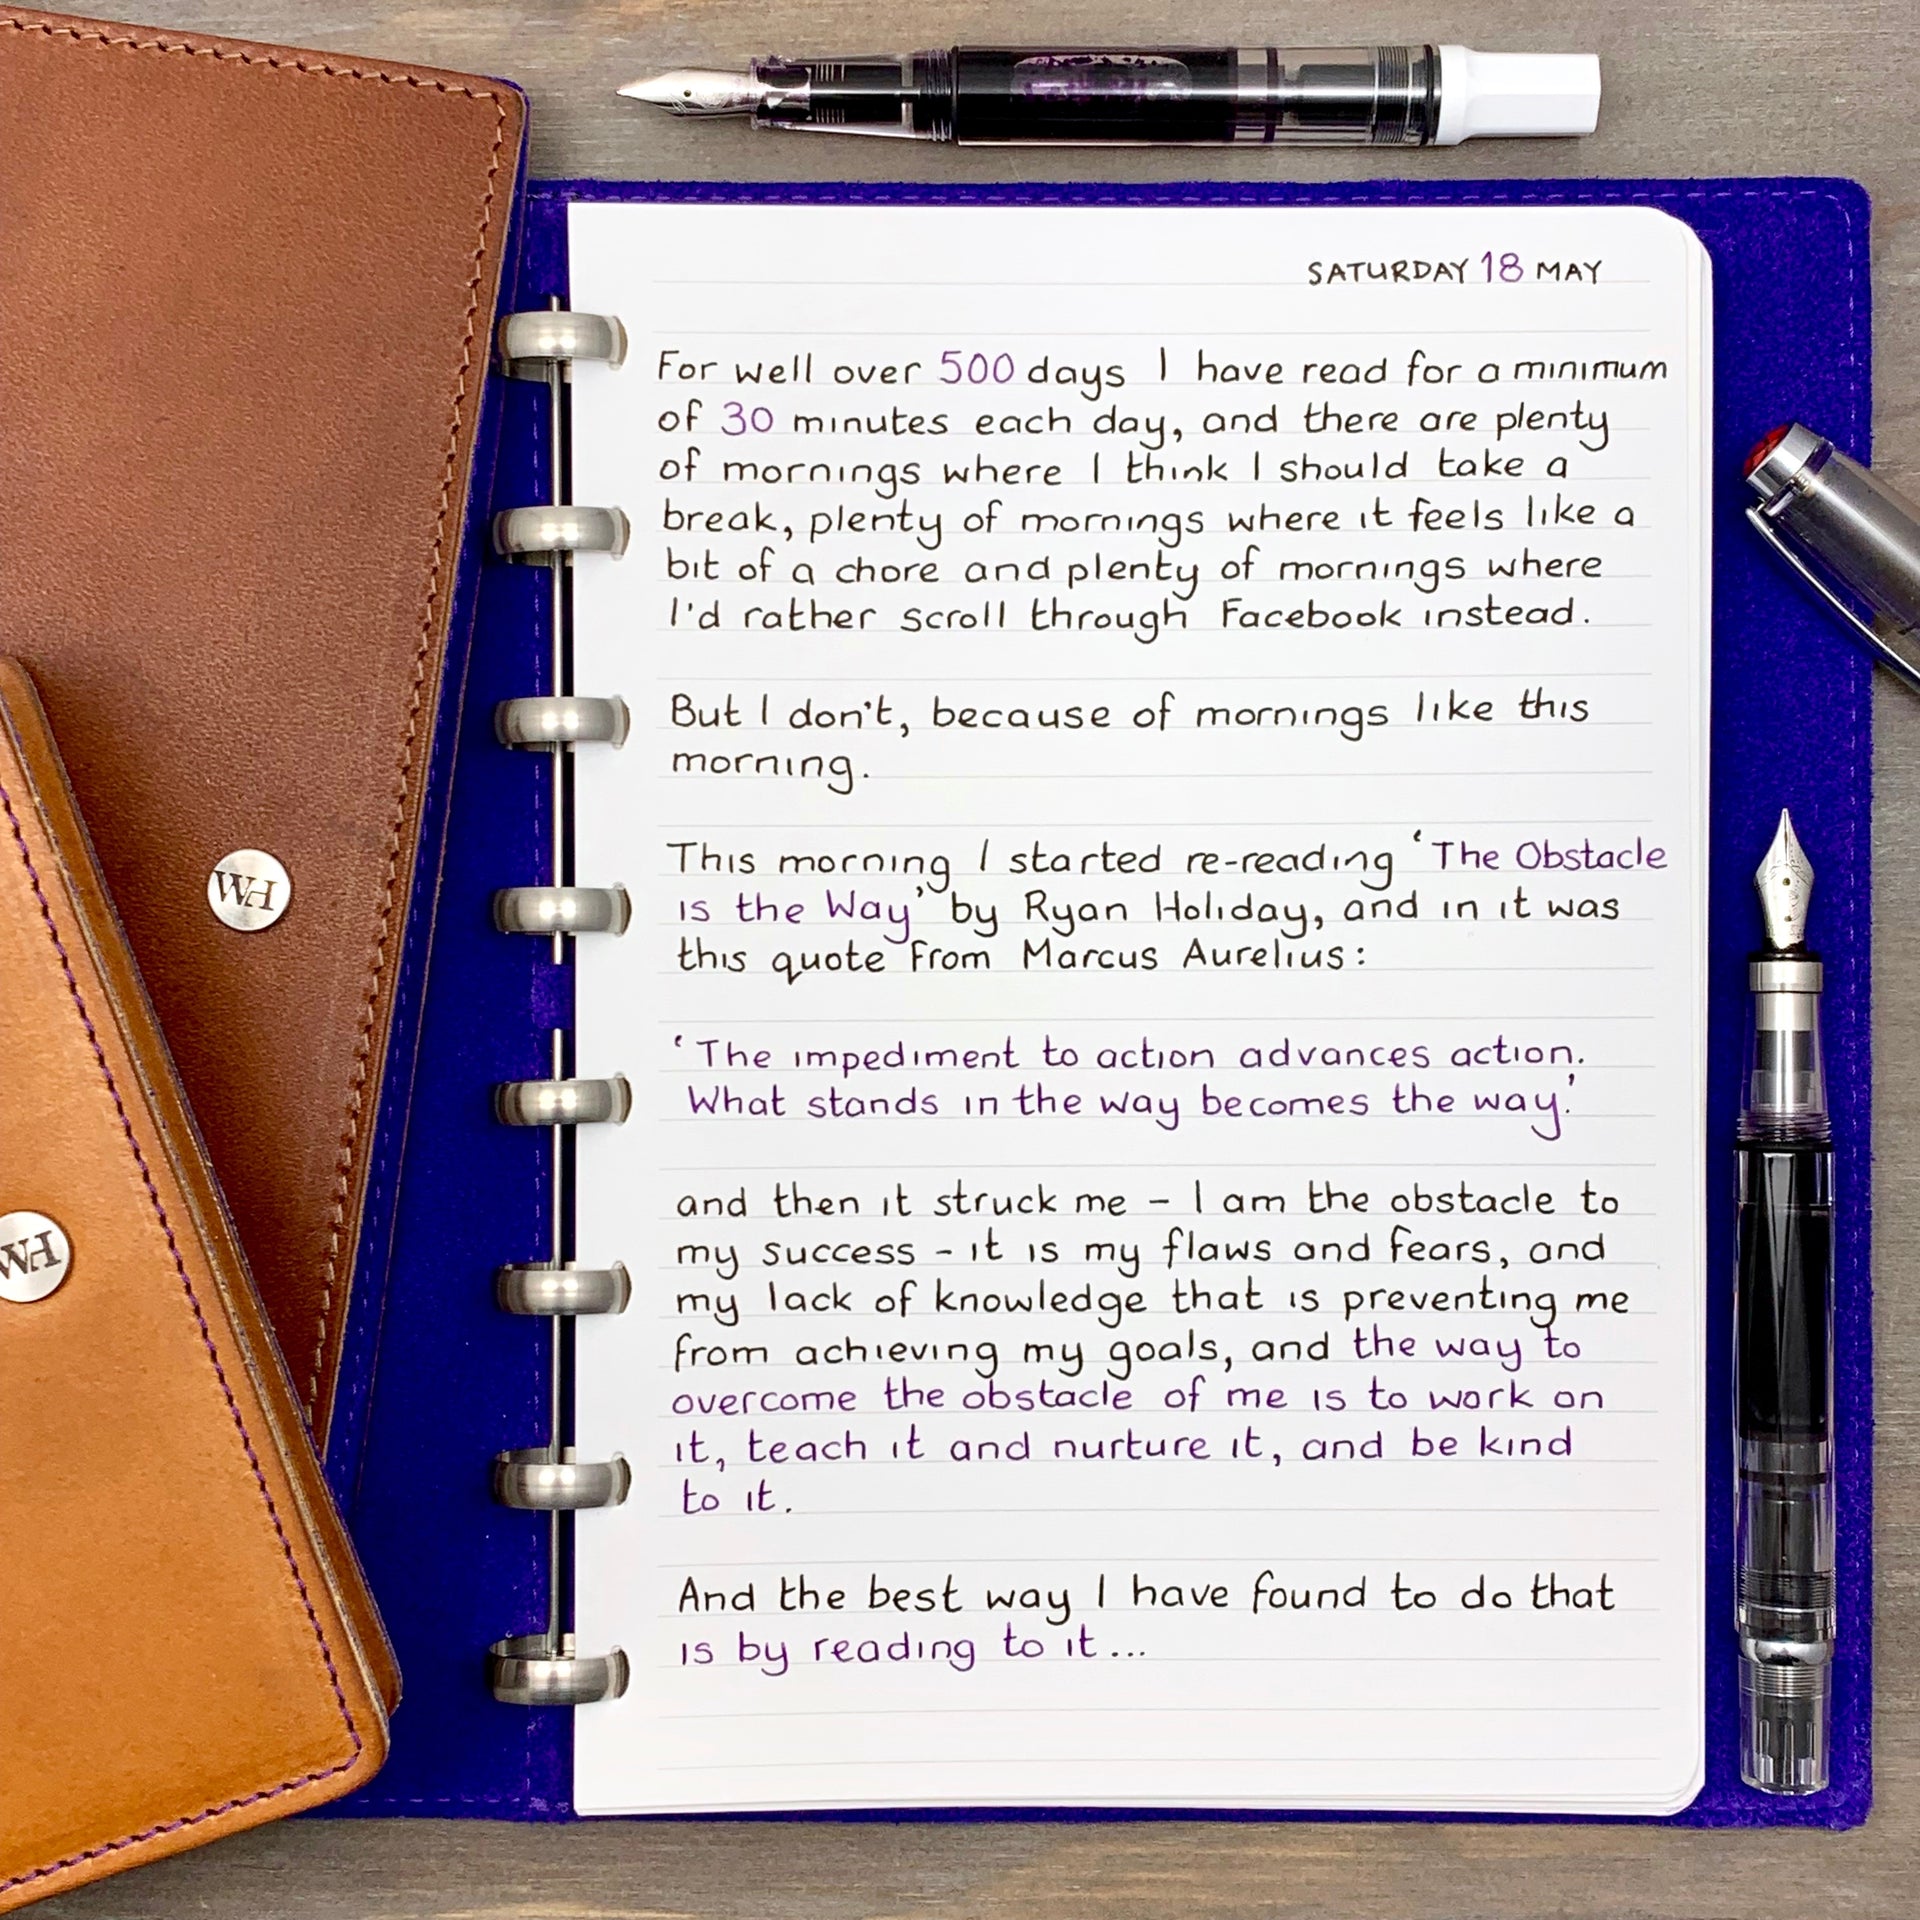 SATURDAY 18 MAY
For well over 500 days I have read for a minimum
of 30 minutes each day, and there are plenty
of mornings where I think I should take a
break, plenty of mornings where it feels like a
bit of a chore and plenty of mornings where
I'd rather scroll through Facebook instead.
But I don't, because of mornings like this
morning.
This morning I started re-reading 'The Obstacle
is the Way' by Ryan Holiday, and in it was
this quote from Marcus Aurelius:
'The impediment to action advances action.
What stands in the way becomes the way.'
and then it struck me - I am the obstacle to
my success - it is my flaws and fears, and
my lack of knowledge that is preventing me
from achieving my goals, and the way to
overcome the obstacle of me is to work on
it, teach it and nurture it, and be kind
to it.
And the best way I have found to do that
is by reading to it...
WH
WH